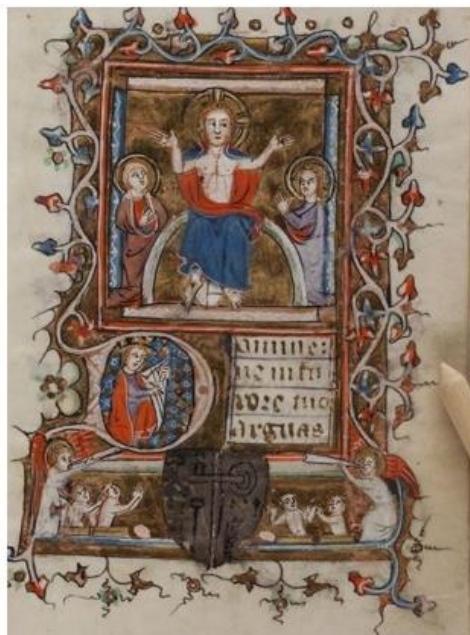 Domine
ne in fu
rore tuo
arguas